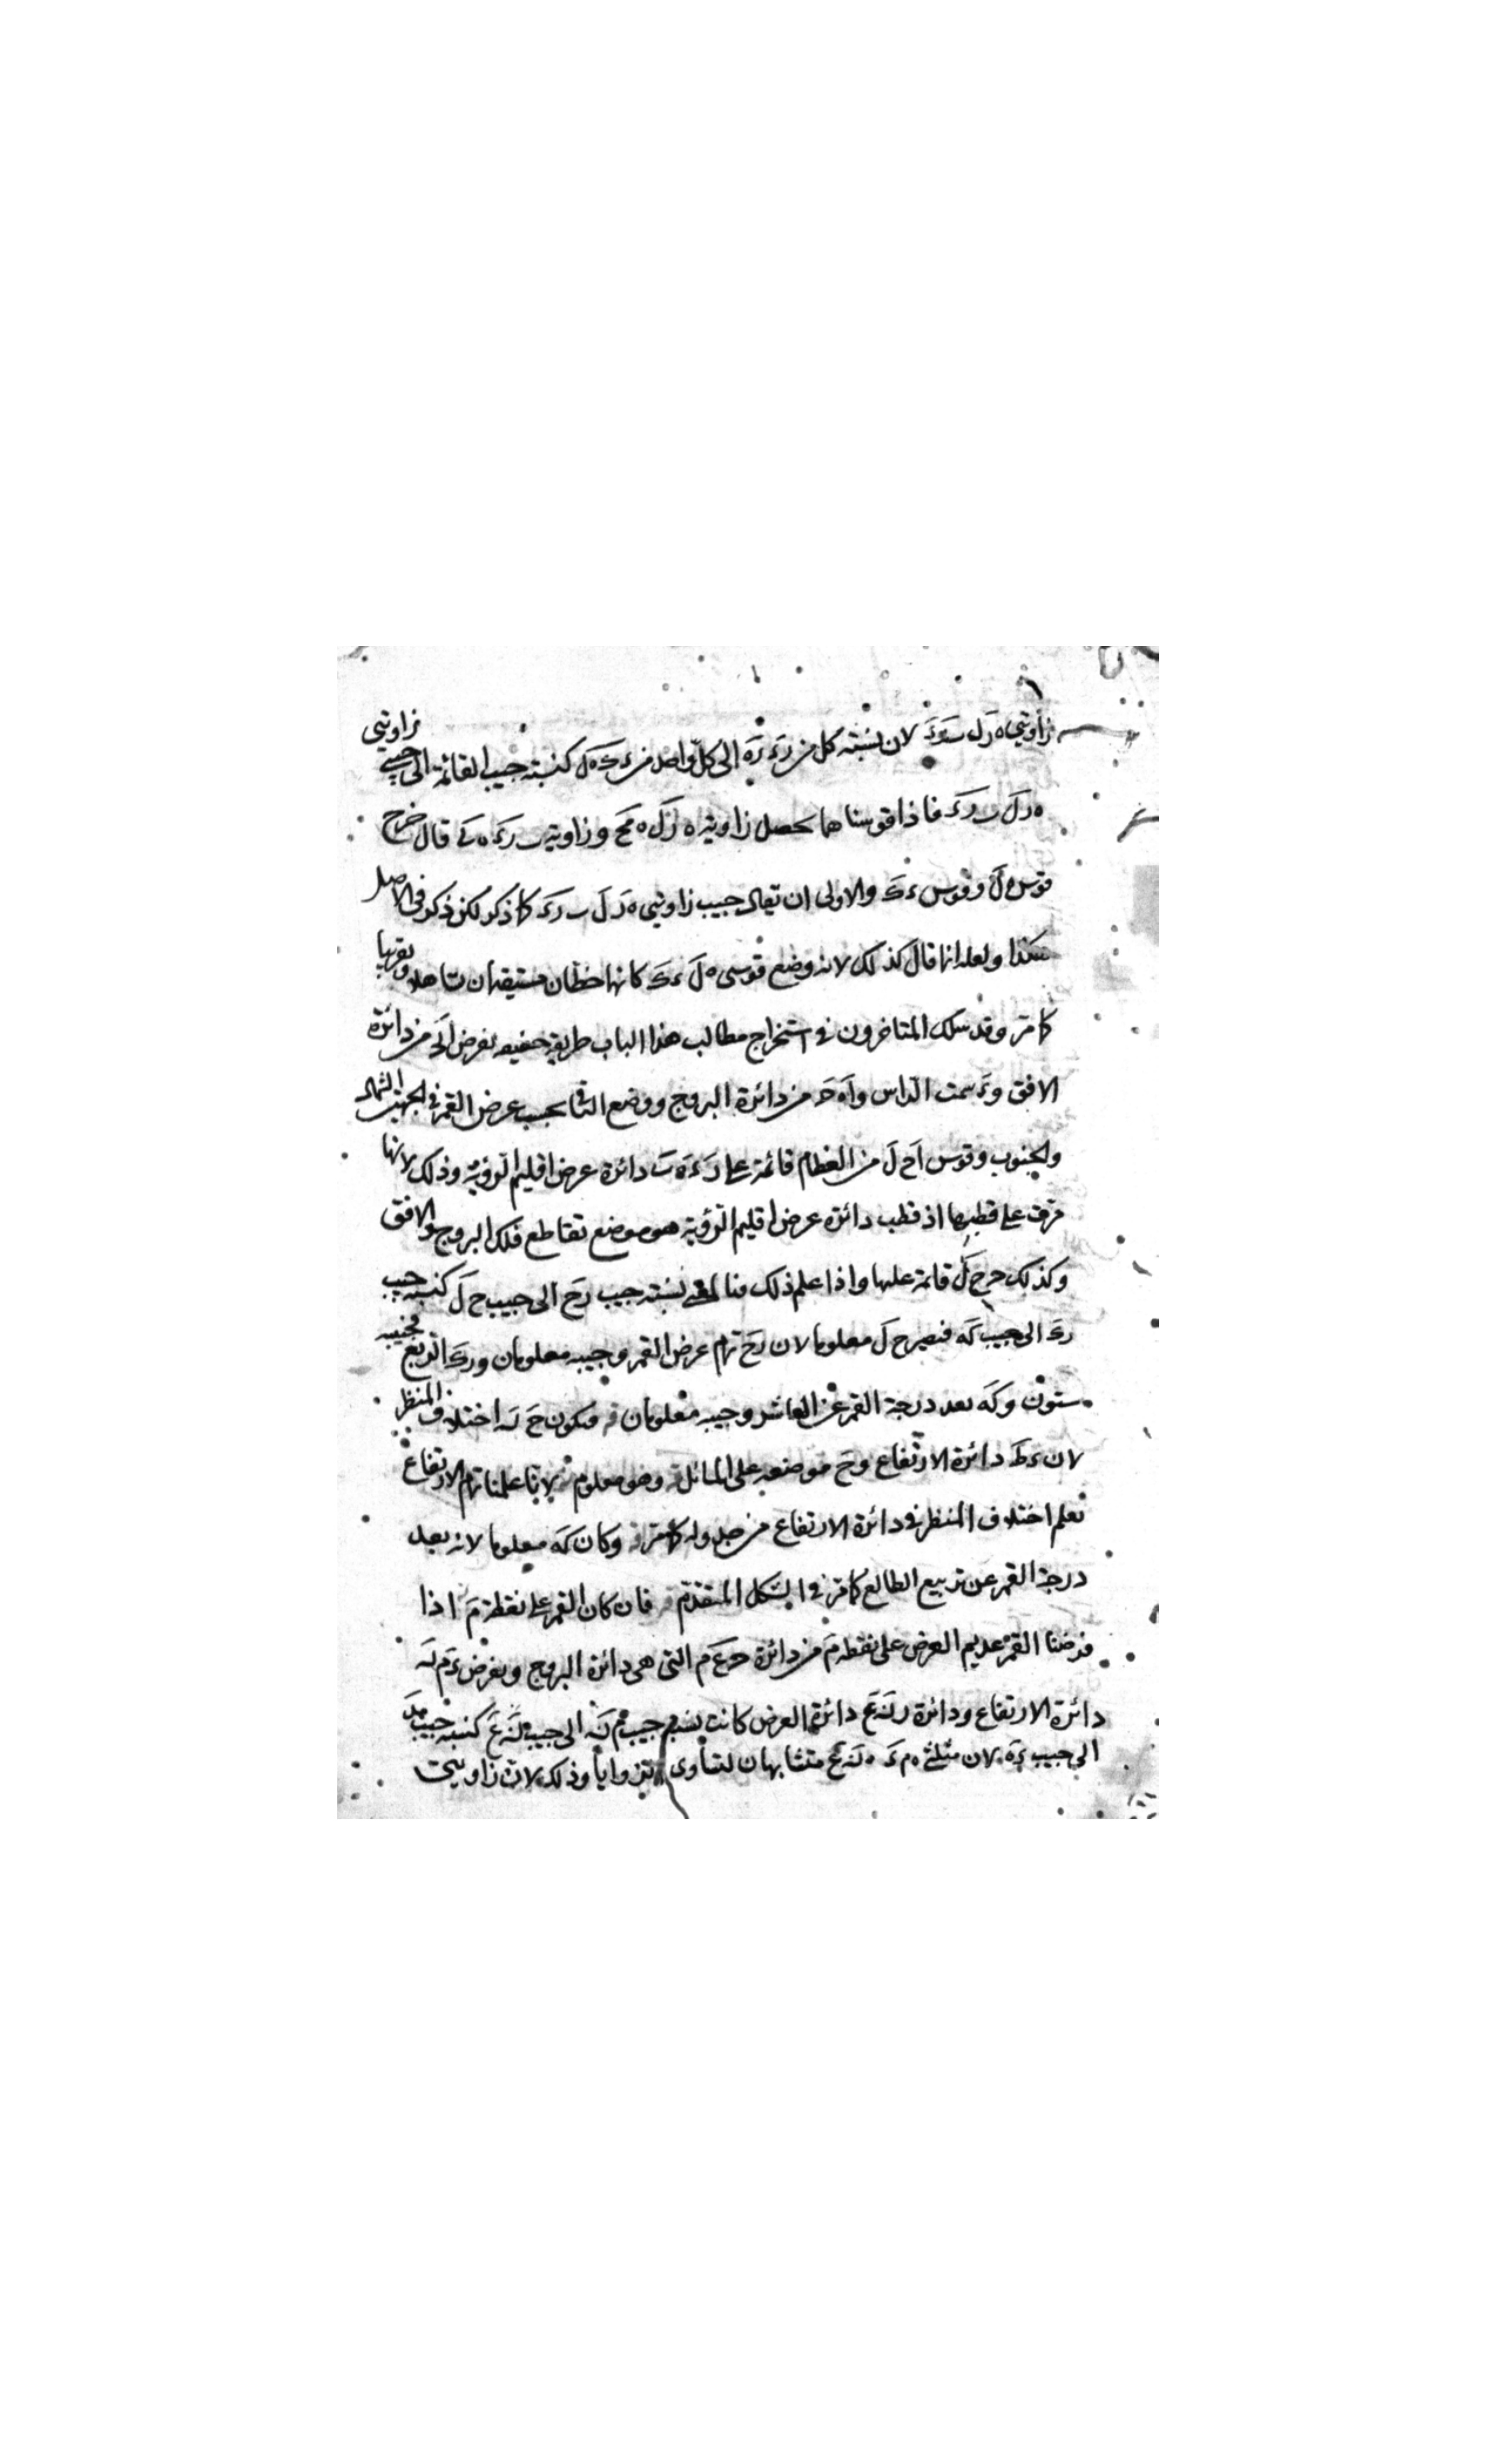 زاويتي ه ر ل ب ر ء لان نسبة كل من ر ء ر ه الى كل واحد من ء ك ه ل كنسبة جيب القائمة الى جيبي زاويتي
ه ر ل ب ر ء فاذا قوسناهما يحصل زاوية ه ر ل ه مح وزاوية ب ر ء ه ك قال خرج
قوس ه ل وقوس ء ك والاولى ان يقال جيب زاويتي ه ر ل ب ر ء كما ذكر لكن ذكر في الاصل
هكذا ولعله انما قال كذلك لانه وضع قوسى ه ل ء ك كانها خطان مستقيمان تساهلا وتقريبا
كما مر وقد سلك المتاخرون في استخراج مطالب هذا الباب طريقة خفيفه نفرض ا ك من دائرة
الافق وء سمت الراس وا ه ح من دائرة البروج ووضع الباقى بحسب عرض القمر في الجهتين الشمال
والجنوب وقوس ا ح ل من العظام قائمة على ر ء ه ب دائرة عرض اقليم الرؤية وذلك لانها
مرت على قطبها اذ قطب دائرة عرض اقليم الرؤية هو موضع تقاطع فلك البروج والافق
وكذلك ح ل قائمة عليها واذا علم ذلك فنا نسبة جيب ر ح الى جيب ح ل كنسبة جيب
ر ك الى جيب ك ه فيصير ح ل معلوما لان ر ح تمام عرض القمر وجيبه معلومان ور ك الربع فجيبه
ستون وك ه بعد درجة القمر عن العاشر وجيبه معلومان فيكون ح ن ه اختلاف المنظر
لان ء ط دائرة الارتفاع وح موضعه على المائل وهو معلوم لانا علمنا تمام الارتفاع
نعلم اختلاف المنظر في دائرة الارتفاع من جدوله كما مر وكان ك ه معلوما لانه بعد
درجة القمر عن تربيع الطالع كما مر في الشكل المتقدم فان كان القمر على نقطة م اذا
فرضنا القمر عديم العرض على نقطة م من دائرة ح ع م التى هى دائرة البروج ونفرض ء م ن ه
دائرة الارتفاع ودائرة ر ن ع دائرة العرض كانت نسبة جيب م ن الى جيب ن ع كنسبة جيب
الى جيب ء ه لان مثلثي ه م ء م ن ع متشابهان لتساوى الزوايا وذلك لان زاويتي